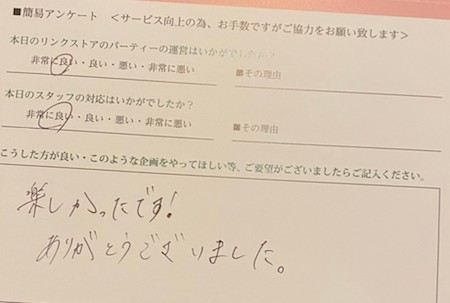 ■簡易アンケート ＜サービス向上の為、お手数ですがご協力をお願い致します＞
本日のリンクストアのパーティーの運営はいかがでしたか？
非常に良い・良い・悪い・非常に悪い
■その理由
本日のスタッフの対応はいかがでしたか？
非常に良い・良い・悪い・非常に悪い
■その理由
こうした方が良い・このような企画をやってほしい等、ご要望がございましたらご記入ください。
楽しかったです!
ありがとうございました。